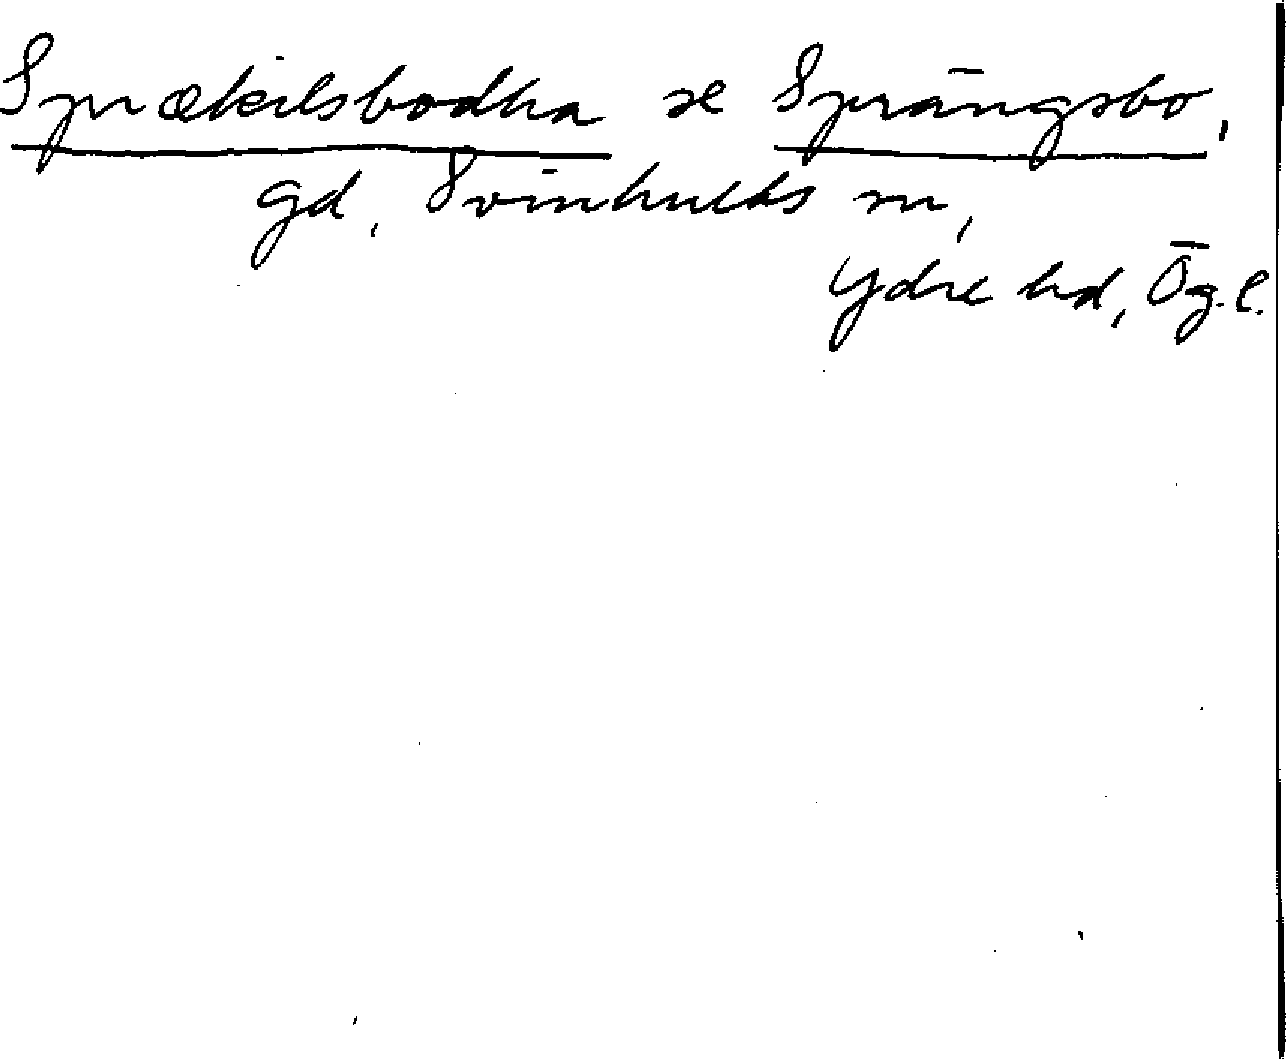 Sprækilsbodha se Sprängsbo,
gd, Svinhults sn,
Ydre hd, Ög.l.